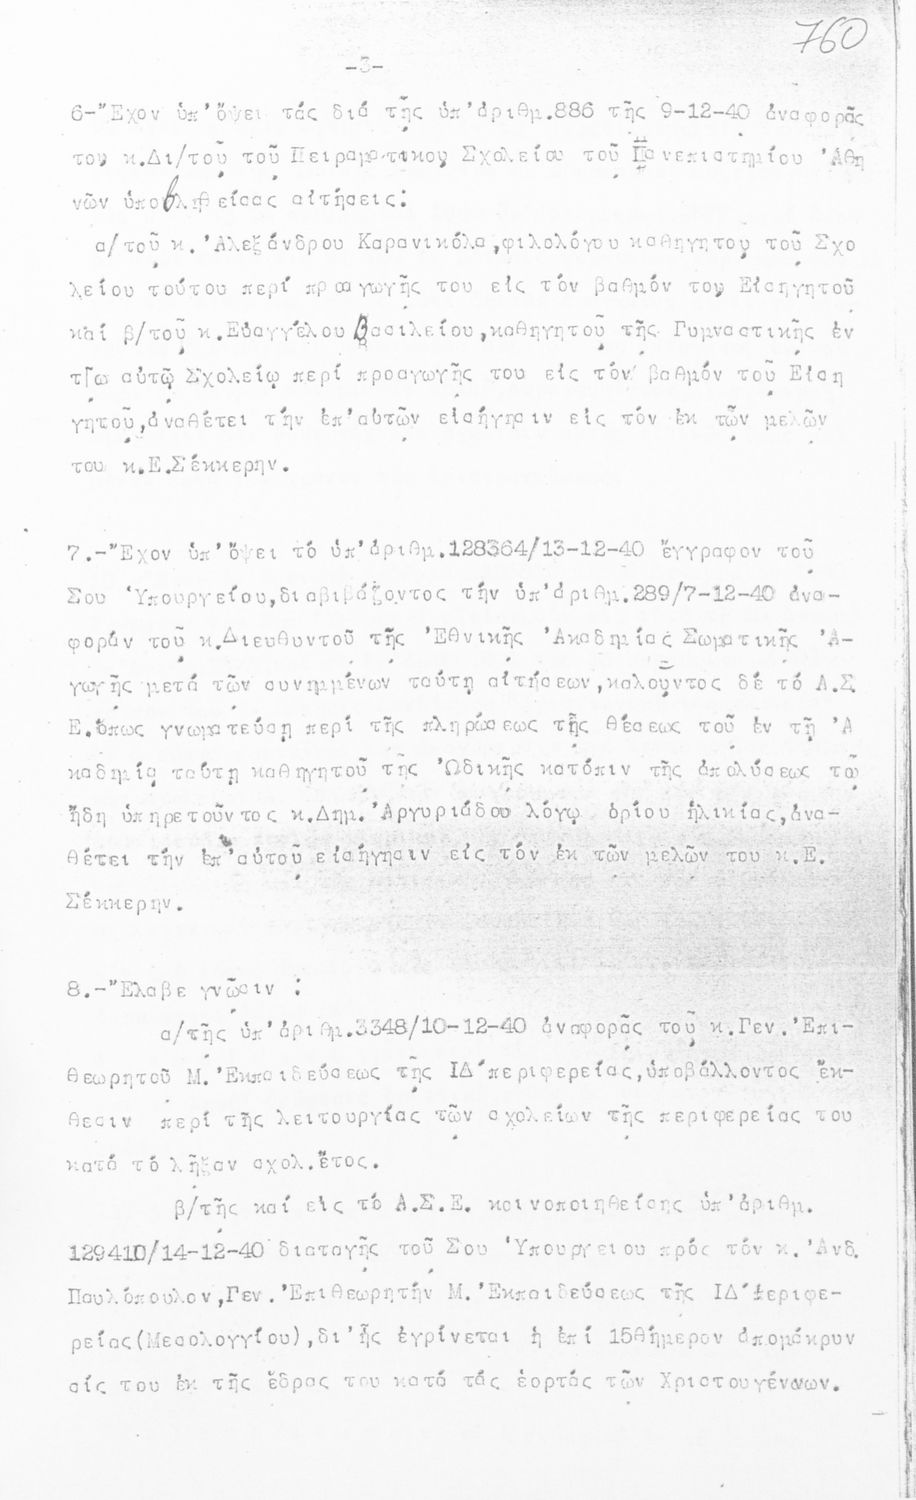 760
-3-
6-"Έχον ὑπ'ὄψει τάς διά τῆς ὑπ'ἀριθμ.886 τῆς 9-12-40 ἀναφορᾶς
τοῦ κ.Δι/τοῦ τοῦ Πειραματικοῦ Σχολείου τοῦ Πανεπιστημίου 'Αθη
νῶν ὑποβληθείσας αἰτήσεις:
α/τοῦ κ.'Αλεξάνδρου Καρανικόλα,φιλολόγου καθηγητοῦ τοῦ Σχο
λείου τούτου περί προαγωγῆς του εἰς τόν βαθμόν τοῦ Εἰσηγητοῦ
καί β/τοῦ κ.Εὐαγγέλου Βασιλείου,καθηγητοῦ τῆς Γυμναστικῆς ἐν
τῷ αὐτῷ Σχολείῳ περί προαγωγῆς του εἰς τόν βαθμόν τοῦ Εἰση
γητοῦ,ἀναθέτει τήν ἐπ'αὐτῶν εἰσήγησιν εἰς τόν ἐκ τῶν μελῶν
του κ.Ε.Σέκκερην.
7.-"Έχον ὑπ'ὄψει τό ὑπ'ἀριθμ.128364/13-12-40 ἔγγραφον τοῦ
Σου 'Υπουργείου,διαβιβάζοντος τήν ὑπ'ἀριθμ.289/7-12-40 ἀνα-
φοράν τοῦ κ.Διευθυντοῦ τῆς 'Εθνικῆς 'Ακαδημίας Σωματικῆς 'Α-
γωγῆς μετά τῶν συνημμένων ταύτῃ αἰτήσεων,καλοῦντος δέ τό Α.Σ.
Ε.ὅπως γνωματεύσῃ περί τῆς πληρώσεως τῆς θέσεως τοῦ ἐν τῇ 'Α
καδημίᾳ ταύτῃ καθηγητοῦ τῆς 'Ωδικῆς κατόπιν τῆς ἀπολύσεως τοῦ
ἤδη ὑπηρετοῦντος κ.Δημ.'Αργυριάδου λόγῳ ὁρίου ἡλικίας,ἀνα-
θέτει τήν ἐπ'αὐτοῦ εἰσήγησιν εἰς τόν ἐκ τῶν μελῶν του κ.Ε.
Σέκκερην.
8.-"Έλαβε γνῶσιν :
α/τῆς ὑπ'ἀριθμ.3348/10-12-40 ἀναφορᾶς τοῦ κ.Γεν.'Επι-
θεωρητοῦ Μ.'Εκπαιδεύσεως τῆς ΙΔ'περιφερείας,ὑποβάλλοντος ἔκ-
θεσιν περί τῆς λειτουργίας τῶν σχολείων τῆς περιφερείας του
κατά τό λῆξαν σχολ.ἔτος.
β/τῆς καί εἰς τό Α.Σ.Ε. κοινοποιηθείσης ὑπ'ἀριθμ.
129410/14-12-40 διαταγῆς τοῦ Σου 'Υπουργείου πρός τόν κ.'Ανδ.
Παυλόπουλον,Γεν.'Επιθεωρητήν Μ.'Εκπαιδεύσεως τῆς ΙΔ'Περιφε-
ρείας(Μεσολογγίου),δι'ἧς ἐγρίνεται ἡ ἐπί 15θήμερον ἀπομάκρυν
σίς του ἐκ τῆς ἕδρας του κατά τάς ἑορτάς τῶν Χριστουγέννων.